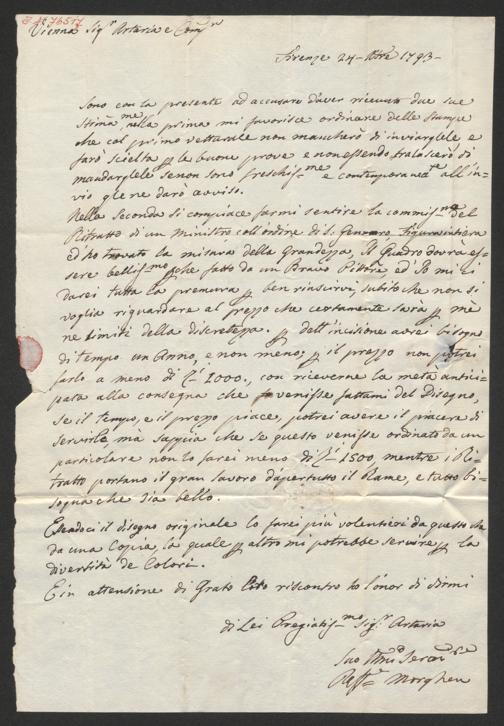 Vienna Sig.r Artaria e Comp.
Firenze 24 1793
Sono con la presente ad accusare d'aver ricevuti due sue
Stim.me, nella prima mi favorisce ordinare delle stampe
che col primo vetturale non mancherò di inviarglele e
farò scielta p le buone prove e non essendo tralascierò di
mandarglele se non sono freschiss.me e contemporanea.te all'in-
vio gie ne darò avviso.
Nella Seconda si compiace farmi sentire la commiss.ne del
Ritratto di un Ministro coll'ordine di S. Gennaro figura intiera
ed ho trovato la misura della Grandezza, Il Quadro dovrà es-
sere belliss.mo che fatto da un Bravo Pittore, ed Io mi ci
darei tutta la premura p ben riuscirvi, subito che non si
voglia riguardare al prezzo che certamente sarà p me
ne limiti della discretezza. p dell'incisione avrei bisogno
di tempo un Anno, e non meno; p il prezzo non potrei
farlo a meno di 1000., con riceverne la metà antici-
pata alla consegna che venisse fattami del Disegno,
se il tempo, e il prezzo piace, potrei avere il piacere di
servirle, ma sappia che se questo venisse ordinato da un
particolare non lo farei meno di 1500, mentre i Ri-
tratti portano il gran lavoro d'apertutto il Rame, e tutto bi-
sogna che sia bello.
Essendoci il disegno originale lo farei più volentieri da questo che
da una Copia, la quale p altro mi potrebbe servire p la
divertità de Colori.
E in attensione di Grato riscontro ho l'onor di dirmi
di Lei Pregiatiss.mo Sig.r Artaria
Suo
Raff.e Morghen